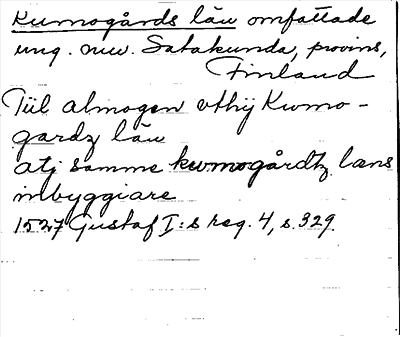 Kumogårds län omfattade
ung. nuv. Satakunda, provins,
Finland
Till almogen vthij Kwmo-
gardz län
atj samme kwmogårdtz läns
inbyggiare
1527 Gustaf I:s reg. 4, s. 329.